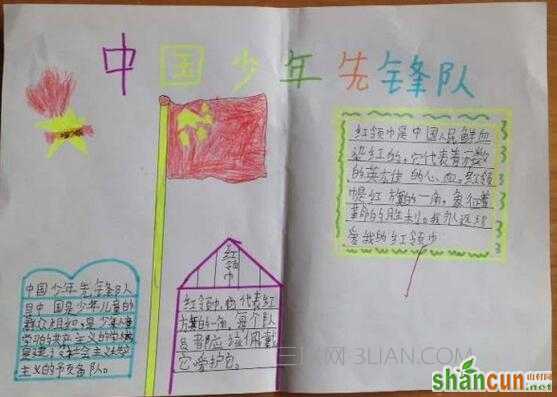 中国少年先锋队
红领巾是中国人民鲜血
染红的,它代表着无数
的英雄的心血。红领
巾是红旗的一角,象征着
革命的胜利。我永远
爱我的红领巾
红领巾
中国少年先锋队
是中国少年儿童的
群众组织,是少年儿童
学习的共产主义的
主义的预备队。
红领巾,它代表红
旗的一角,每个队
员都应该佩戴
它爱护它。
三联网 3LIAN.COM
shancun.net